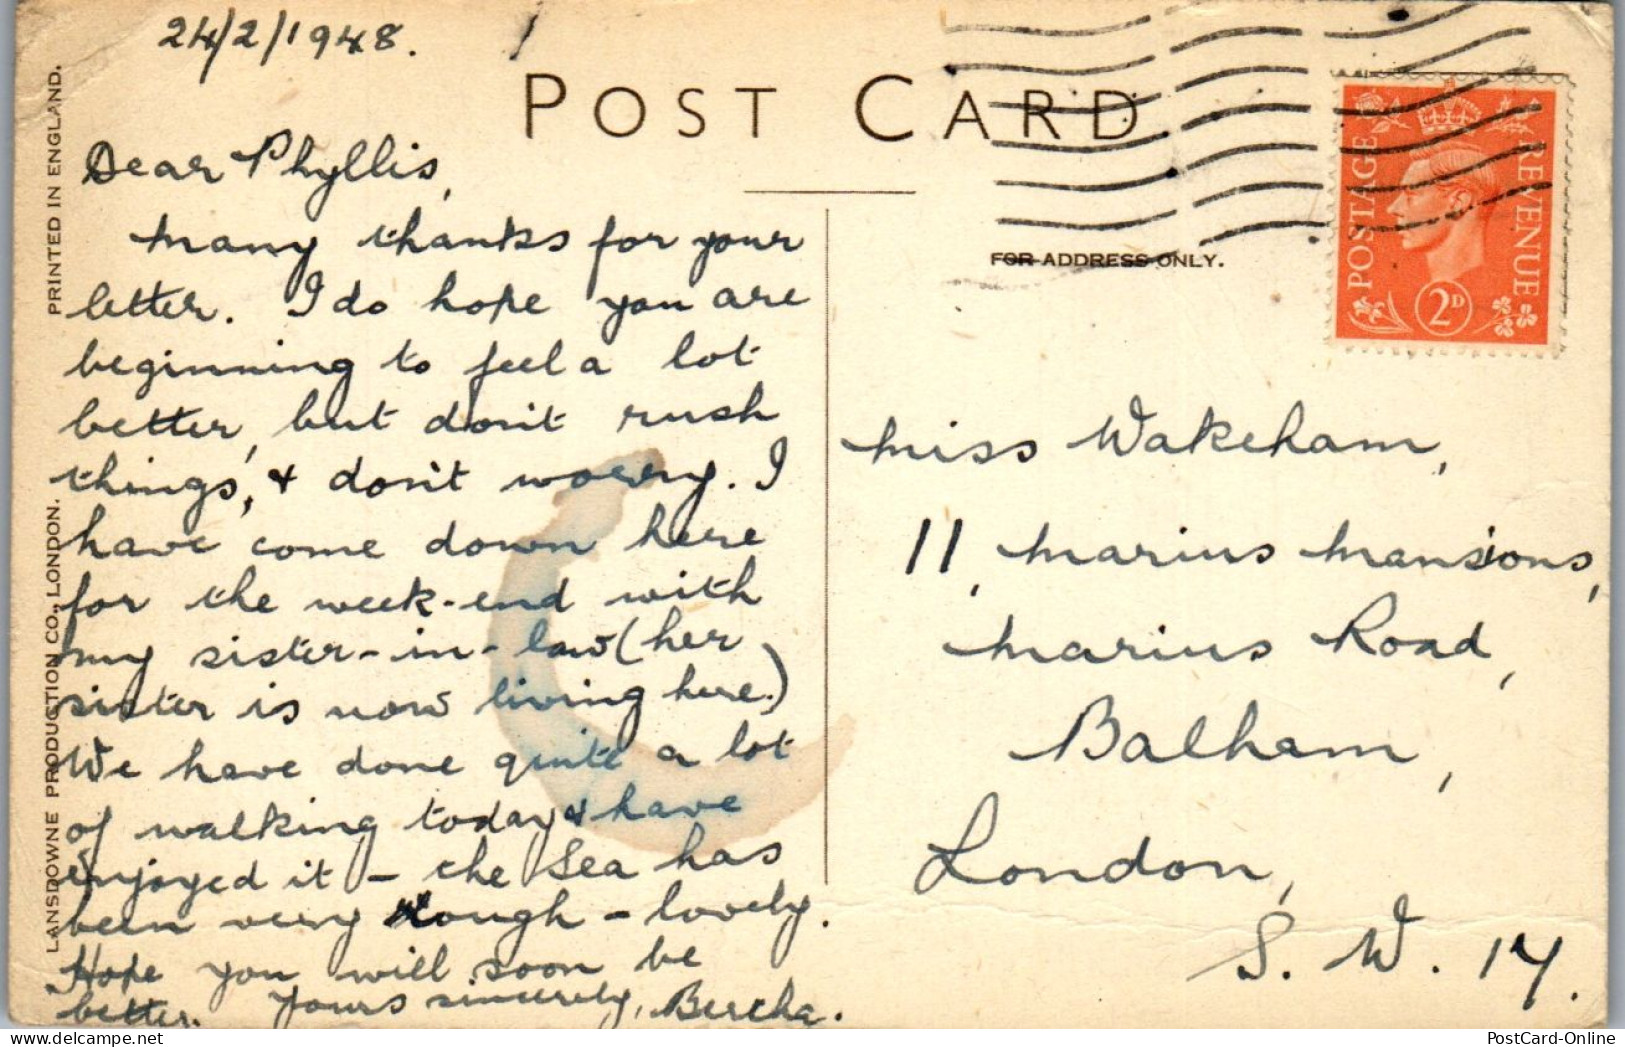 24/2/1948.
POST CARD
PRINTED IN ENGLAND.
LANSDOWNE PRODUCTION CO., LONDON.
Dear Phyllis,
Many thanks for your
letter. I do hope you are
beginning to feel a lot
better, but don't rush
things, & don't worry. I
have come down here
for the week-end with
my sister-in-law (her
sister is now living here.)
We have done quite a lot
of walking today & have
enjoyed it - the Sea has
been very rough - lovely.
Hope you will soon be
better. Yours sincerely, Bertha.
FOR ADDRESS ONLY.
POSTAGE
REVENUE
2D
Miss Wakeham,
11, Marius Mansions,
Marius Road,
Balham,
London,
S. W. 17.
PostCard-Online